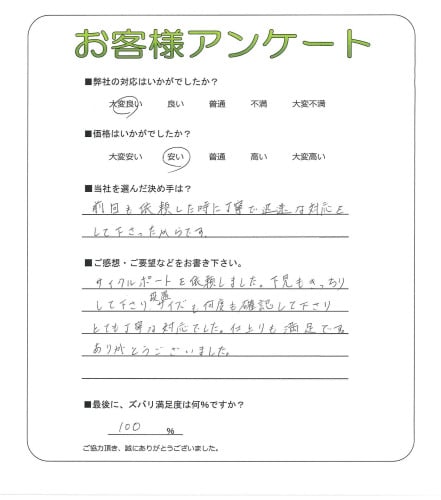 お客様アンケート
■弊社の対応はいかがでしたか?
大変良い 良い 普通 不満 大変不満
■価格はいかがでしたか?
大変安い 安い 普通 高い 大変高い
■当社を選んだ決め手は?
前回も依頼した時に丁寧で迅速な対応を
して下さったからです。
■ご感想・ご要望などをお書き下さい。
サイクルポートを依頼しました。下見もきっちり
して下さり設置サイズも何度も確認して下さり
とても丁寧な対応でした。仕上りも満足です。
ありがとうございました。
■最後に、ズバリ満足度は何%ですか?
100 %
ご協力頂き、誠にありがとうございました。